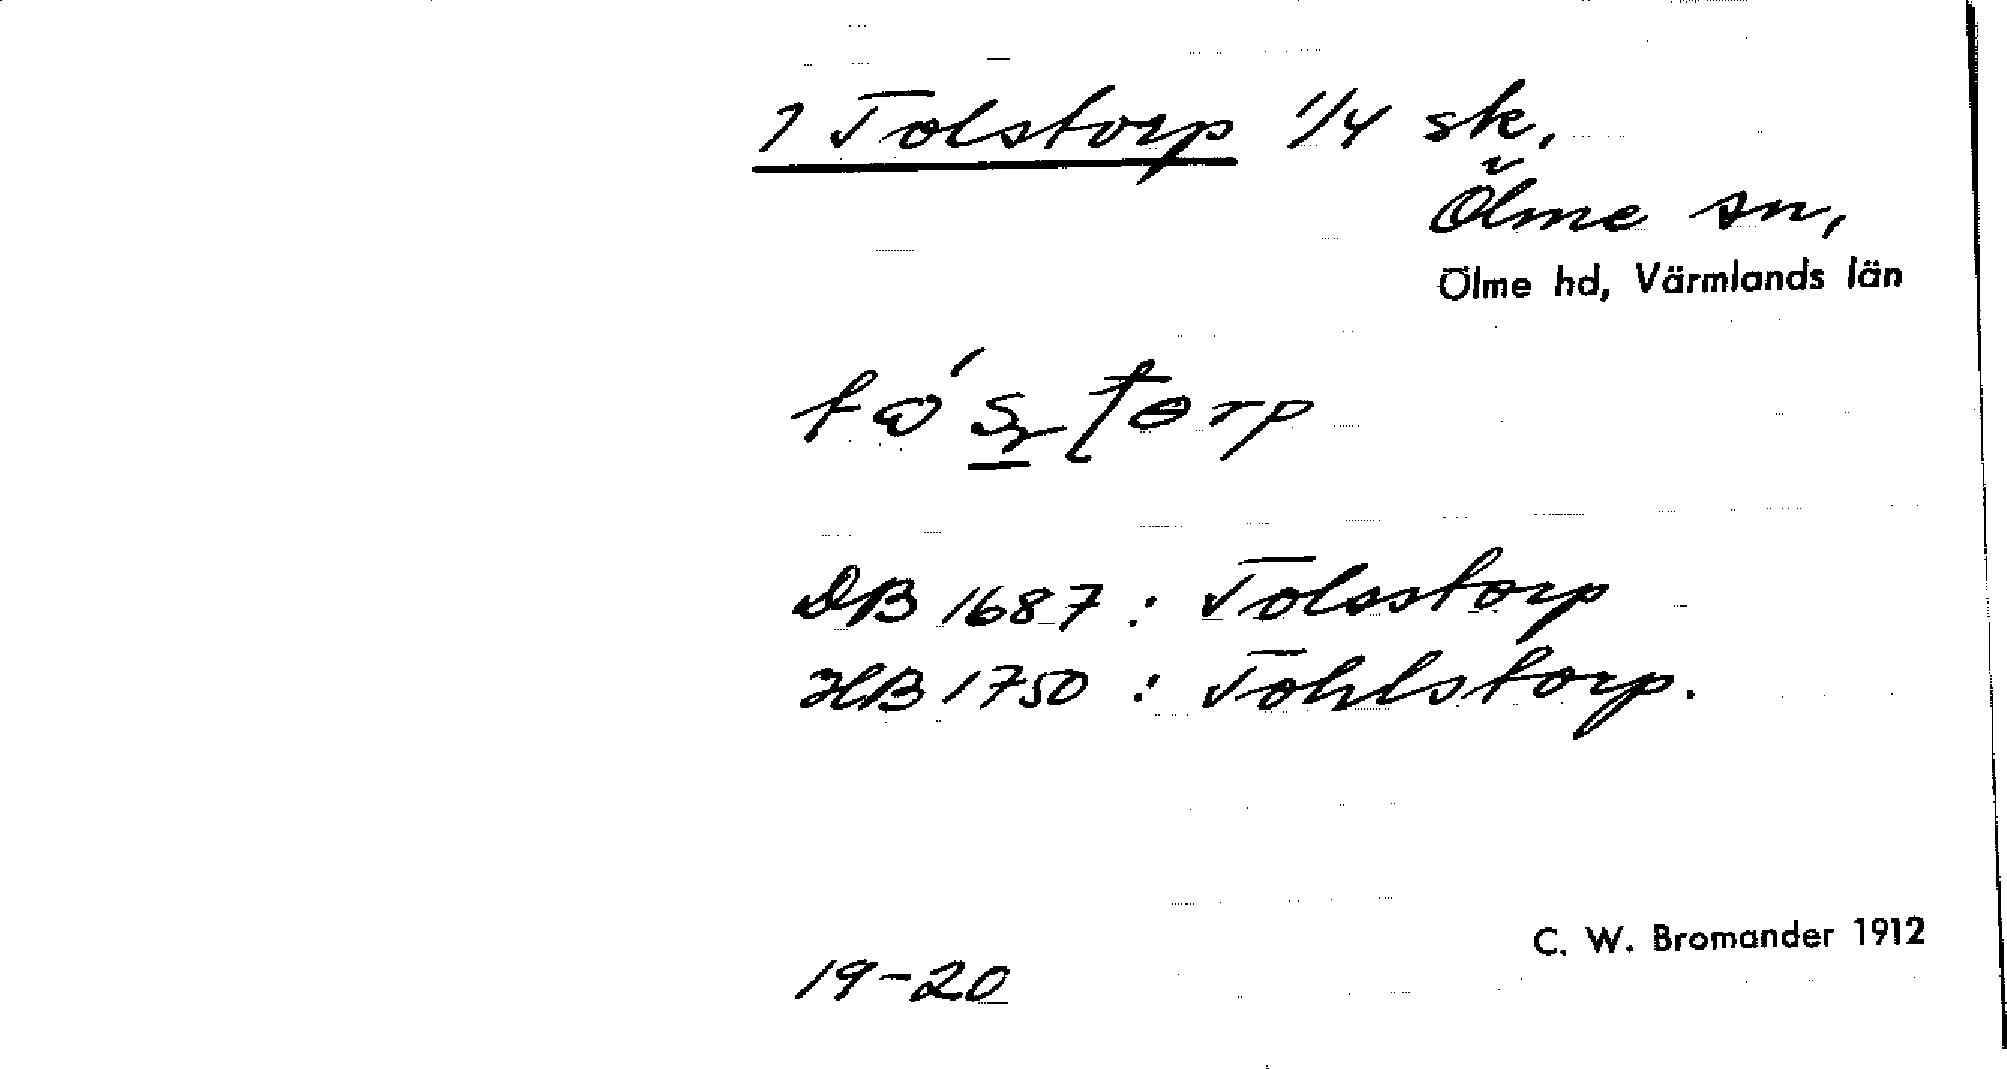 1 Tolstorp 1/4 sk,
Ölme sn,
Ölme hd, Värmlands län
DB 1687: Tolsstorp
HB 1750: Tohlstorp.
C. W. Bromander 1912
19-20